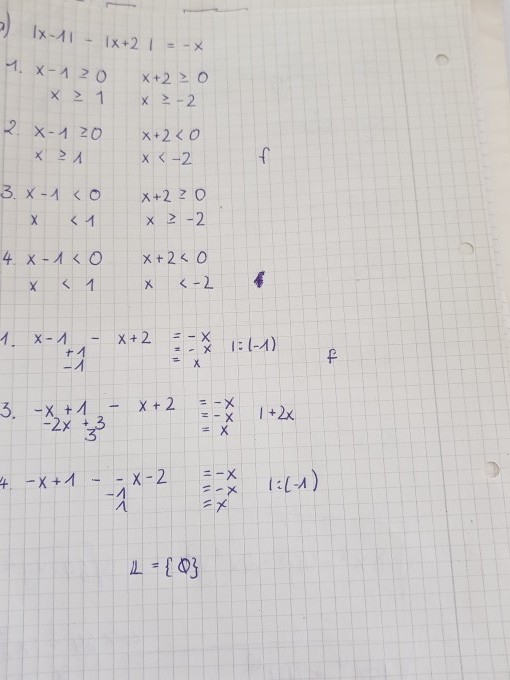 a) |x-1| - |x+2| = -x
1. x-1 ≥ 0 x+2 ≥ 0
x ≥ 1 x ≥ -2
2. x-1 ≥ 0 x+2 < 0
x ≥ 1 x < -2 f
3. x-1 < 0 x+2 ≥ 0
x < 1 x ≥ -2
4. x-1 < 0 x+2 < 0
x < 1 x < -2
1. x-1 - x+2 = -x
+1 = -x |:(-1)
-1 = x f
3. -x+1 - x+2 = -x
-2x + 3 = -x |+2x
3 = x
4. -x+1 - -x-2 = -x
-1 = -x |:(-1)
1 = x
𝕃 = {∅}